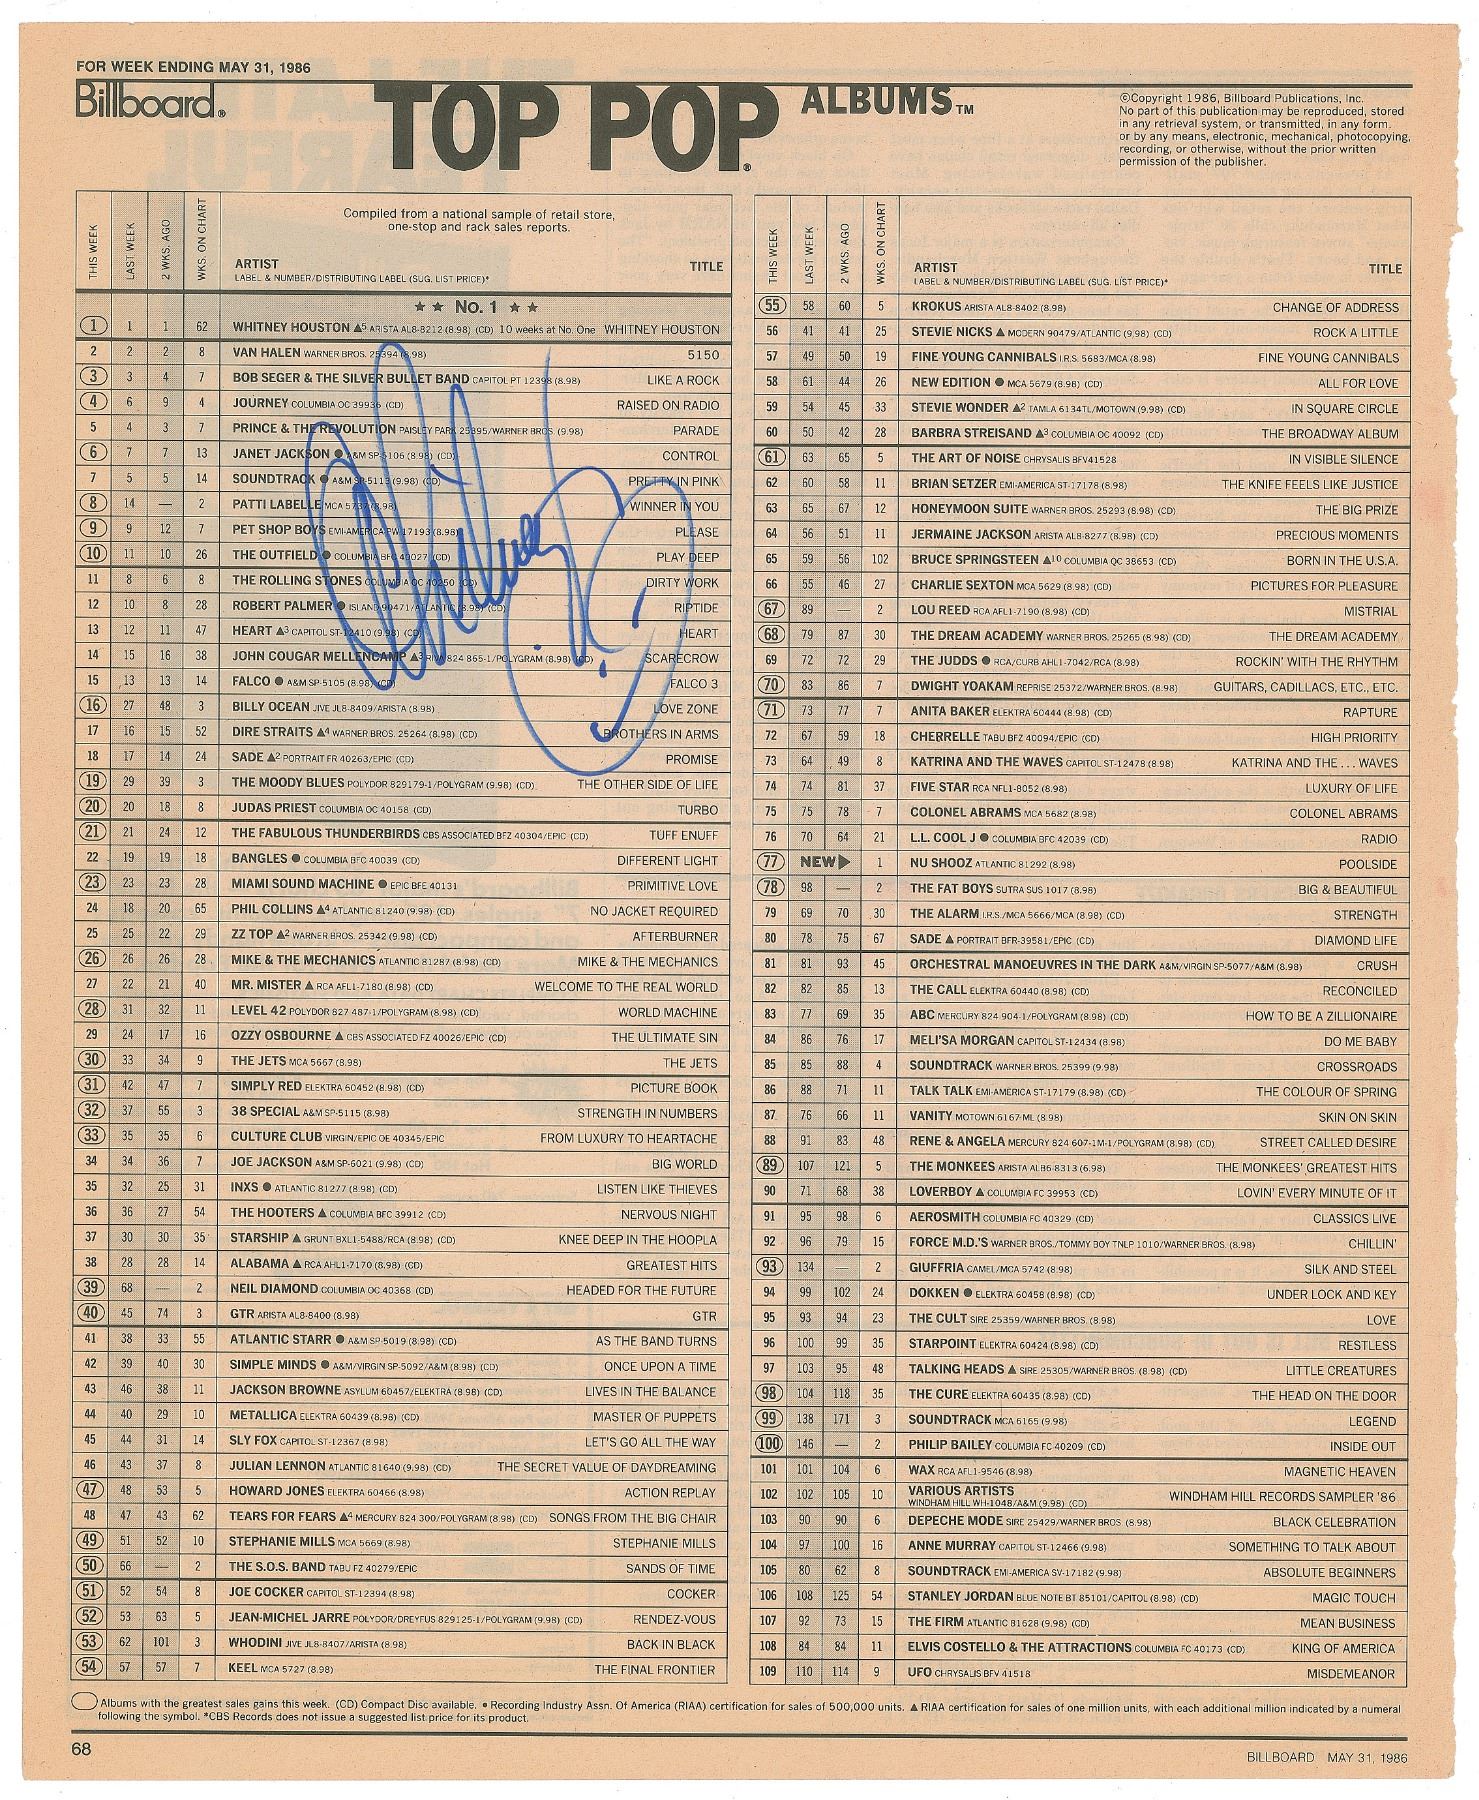 FOR WEEK ENDING MAY 31, 1986
Billboard® TOP POP® ALBUMS™
©Copyright 1986, Billboard Publications, Inc.
No part of this publication may be reproduced, stored
in any retrieval system, or transmitted, in any form
or by any means, electronic, mechanical, photocopying,
recording, or otherwise, without the prior written
permission of the publisher.
THIS WEEK LAST WEEK 2 WKS. AGO WKS. ON CHART
Compiled from a national sample of retail store,
one-stop and rack sales reports.
ARTIST TITLE
LABEL & NUMBER/DISTRIBUTING LABEL (SUG. LIST PRICE)*
★★ No. 1 ★★
1 1 1 62 WHITNEY HOUSTON ▲5 ARISTA AL8-8212 (8.98) (CD) 10 weeks at No. One WHITNEY HOUSTON
2 2 2 8 VAN HALEN WARNER BROS. 25394 (8.98) 5150
3 3 4 7 BOB SEGER & THE SILVER BULLET BAND CAPITOL PT 12398 (8.98) LIKE A ROCK
4 6 9 4 JOURNEY COLUMBIA OC 39936 (CD) RAISED ON RADIO
5 4 3 7 PRINCE & THE REVOLUTION PAISLEY PARK 25395/WARNER BROS. (9.98) PARADE
6 7 7 13 JANET JACKSON ● A&M SP-5106 (8.98) (CD) CONTROL
7 5 5 14 SOUNDTRACK ● A&M SP-5113 (9.98) (CD) PRETTY IN PINK
8 14 — 2 PATTI LABELLE MCA 5737 (8.98) WINNER IN YOU
9 9 12 7 PET SHOP BOYS EMI-AMERICA PW 17193 (8.98) PLEASE
10 11 10 26 THE OUTFIELD ● COLUMBIA BFC 40027 (CD) PLAY DEEP
11 8 6 8 THE ROLLING STONES COLUMBIA OC 40250 (CD) DIRTY WORK
12 10 8 28 ROBERT PALMER ● ISLAND 90471/ATLANTIC (8.98) (CD) RIPTIDE
13 12 11 47 HEART ▲3 CAPITOL ST-12410 (9.98) (CD) HEART
14 15 16 38 JOHN COUGAR MELLENCAMP ▲3 RIVA 824 865-1/POLYGRAM (8.98) (CD) SCARECROW
15 13 13 14 FALCO ● A&M SP-5105 (8.98) (CD) FALCO 3
16 27 48 3 BILLY OCEAN JIVE JL8-8409/ARISTA (8.98) LOVE ZONE
17 16 15 52 DIRE STRAITS ▲4 WARNER BROS. 25264 (8.98) (CD) BROTHERS IN ARMS
18 17 14 24 SADE ▲2 PORTRAIT FR 40263/EPIC (CD) PROMISE
19 29 39 3 THE MOODY BLUES POLYDOR 829179-1/POLYGRAM (9.98) (CD) THE OTHER SIDE OF LIFE
20 20 18 8 JUDAS PRIEST COLUMBIA OC 40158 (CD) TURBO
21 21 24 12 THE FABULOUS THUNDERBIRDS CBS ASSOCIATED BFZ 40304/EPIC (CD) TUFF ENUFF
22 19 19 18 BANGLES ● COLUMBIA BFC 40039 (CD) DIFFERENT LIGHT
23 23 23 28 MIAMI SOUND MACHINE ● EPIC BFE 40131 PRIMITIVE LOVE
24 18 20 65 PHIL COLLINS ▲4 ATLANTIC 81240 (9.98) (CD) NO JACKET REQUIRED
25 25 22 29 ZZ TOP ▲2 WARNER BROS. 25342 (9.98) (CD) AFTERBURNER
26 26 26 28 MIKE & THE MECHANICS ATLANTIC 81287 (8.98) (CD) MIKE & THE MECHANICS
27 22 21 40 MR. MISTER ▲ RCA AFL1-7180 (8.98) (CD) WELCOME TO THE REAL WORLD
28 31 32 11 LEVEL 42 POLYDOR 827 487-1/POLYGRAM (8.98) (CD) WORLD MACHINE
29 24 17 16 OZZY OSBOURNE ▲ CBS ASSOCIATED FZ 40026/EPIC (CD) THE ULTIMATE SIN
30 33 34 9 THE JETS MCA 5667 (8.98) THE JETS
31 42 47 7 SIMPLY RED ELEKTRA 60452 (8.98) (CD) PICTURE BOOK
32 37 55 3 38 SPECIAL A&M SP-5115 (8.98) STRENGTH IN NUMBERS
33 35 35 6 CULTURE CLUB VIRGIN/EPIC OE 40345/EPIC FROM LUXURY TO HEARTACHE
34 34 36 7 JOE JACKSON A&M SP-6021 (9.98) (CD) BIG WORLD
35 32 25 31 INXS ● ATLANTIC 81277 (8.98) (CD) LISTEN LIKE THIEVES
36 36 27 54 THE HOOTERS ▲ COLUMBIA BFC 39912 (CD) NERVOUS NIGHT
37 30 30 35 STARSHIP ▲ GRUNT BXL1-5488/RCA (8.98) (CD) KNEE DEEP IN THE HOOPLA
38 28 28 14 ALABAMA ▲ RCA AHL1-7170 (8.98) (CD) GREATEST HITS
39 68 — 2 NEIL DIAMOND COLUMBIA OC 40368 (CD) HEADED FOR THE FUTURE
40 45 74 3 GTR ARISTA AL8-8400 (8.98) GTR
41 38 33 55 ATLANTIC STARR ● A&M SP-5019 (8.98) (CD) AS THE BAND TURNS
42 39 40 30 SIMPLE MINDS ● A&M/VIRGIN SP-5092/A&M (8.98) (CD) ONCE UPON A TIME
43 46 38 11 JACKSON BROWNE ASYLUM 60457/ELEKTRA (8.98) (CD) LIVES IN THE BALANCE
44 40 29 10 METALLICA ELEKTRA 60439 (8.98) (CD) MASTER OF PUPPETS
45 44 31 14 SLY FOX CAPITOL ST-12367 (8.98) LET'S GO ALL THE WAY
46 43 37 8 JULIAN LENNON ATLANTIC 81640 (9.98) (CD) THE SECRET VALUE OF DAYDREAMING
47 48 53 5 HOWARD JONES ELEKTRA 60466 (8.98) ACTION REPLAY
48 47 43 62 TEARS FOR FEARS ▲4 MERCURY 824 300/POLYGRAM (8.98) (CD) SONGS FROM THE BIG CHAIR
49 51 52 10 STEPHANIE MILLS MCA 5669 (8.98) (CD) STEPHANIE MILLS
50 66 — 2 THE S.O.S. BAND TABU FZ 40279/EPIC SANDS OF TIME
51 52 54 8 JOE COCKER CAPITOL ST-12394 (8.98) COCKER
52 53 63 5 JEAN-MICHEL JARRE POLYDOR/DREYFUS 829125-1/POLYGRAM (9.98) (CD) RENDEZ-VOUS
53 62 101 3 WHODINI JIVE JL8-8407/ARISTA (8.98) BACK IN BLACK
54 57 57 7 KEEL MCA 5727 (8.98) THE FINAL FRONTIER
THIS WEEK LAST WEEK 2 WKS. AGO WKS. ON CHART
ARTIST TITLE
LABEL & NUMBER/DISTRIBUTING LABEL (SUG. LIST PRICE)*
55 58 60 5 KROKUS ARISTA AL8-8402 (8.98) CHANGE OF ADDRESS
56 41 41 25 STEVIE NICKS ▲ MODERN 90479/ATLANTIC (9.98) (CD) ROCK A LITTLE
57 49 50 19 FINE YOUNG CANNIBALS I.R.S. 5683/MCA (8.98) FINE YOUNG CANNIBALS
58 61 44 26 NEW EDITION ● MCA 5679 (8.98) (CD) ALL FOR LOVE
59 54 45 33 STEVIE WONDER ▲2 TAMLA 6134TL/MOTOWN (9.98) (CD) IN SQUARE CIRCLE
60 50 42 28 BARBRA STREISAND ▲3 COLUMBIA OC 40092 (CD) THE BROADWAY ALBUM
61 63 65 5 THE ART OF NOISE CHRYSALIS BFV41528 IN VISIBLE SILENCE
62 60 58 11 BRIAN SETZER EMI-AMERICA ST-17178 (8.98) THE KNIFE FEELS LIKE JUSTICE
63 65 67 12 HONEYMOON SUITE WARNER BROS. 25293 (8.98) (CD) THE BIG PRIZE
64 56 51 11 JERMAINE JACKSON ARISTA AL8-8277 (8.98) (CD) PRECIOUS MOMENTS
65 59 56 102 BRUCE SPRINGSTEEN ▲10 COLUMBIA QC 38653 (CD) BORN IN THE U.S.A.
66 55 46 27 CHARLIE SEXTON MCA 5629 (8.98) (CD) PICTURES FOR PLEASURE
67 89 — 2 LOU REED RCA AFL1-7190 (8.98) (CD) MISTRIAL
68 79 87 30 THE DREAM ACADEMY WARNER BROS. 25265 (8.98) (CD) THE DREAM ACADEMY
69 72 72 29 THE JUDDS ● RCA/CURB AHL1-7042/RCA (8.98) ROCKIN' WITH THE RHYTHM
70 83 86 7 DWIGHT YOAKAM REPRISE 25372/WARNER BROS. (8.98) GUITARS, CADILLACS, ETC., ETC.
71 73 77 7 ANITA BAKER ELEKTRA 60444 (8.98) (CD) RAPTURE
72 67 59 18 CHERRELLE TABU BFZ 40094/EPIC (CD) HIGH PRIORITY
73 64 49 8 KATRINA AND THE WAVES CAPITOL ST-12478 (8.98) KATRINA AND THE ... WAVES
74 74 81 37 FIVE STAR RCA NFL1-8052 (8.98) LUXURY OF LIFE
75 75 78 7 COLONEL ABRAMS MCA 5682 (8.98) COLONEL ABRAMS
76 70 64 21 L.L. COOL J ● COLUMBIA BFC 42039 (CD) RADIO
77 NEW▶ 1 NU SHOOZ ATLANTIC 81292 (8.98) POOLSIDE
78 98 — 2 THE FAT BOYS SUTRA SUS 1017 (8.98) BIG & BEAUTIFUL
79 69 70 30 THE ALARM I.R.S./MCA 5666/MCA (8.98) (CD) STRENGTH
80 78 75 67 SADE ▲ PORTRAIT BFR-39581/EPIC (CD) DIAMOND LIFE
81 81 93 45 ORCHESTRAL MANOEUVRES IN THE DARK A&M/VIRGIN SP-5077/A&M (8.98) CRUSH
82 82 85 13 THE CALL ELEKTRA 60440 (8.98) (CD) RECONCILED
83 77 69 35 ABC MERCURY 824 904-1/POLYGRAM (8.98) (CD) HOW TO BE A ZILLIONAIRE
84 86 76 17 MELI'SA MORGAN CAPITOL ST-12434 (8.98) (CD) DO ME BABY
85 85 88 4 SOUNDTRACK WARNER BROS. 25399 (9.98) CROSSROADS
86 88 71 11 TALK TALK EMI-AMERICA ST-17179 (8.98) (CD) THE COLOUR OF SPRING
87 76 66 11 VANITY MOTOWN 6167 ML (8.98) SKIN ON SKIN
88 91 83 48 RENE & ANGELA MERCURY 824 607-1M-1/POLYGRAM (8.98) (CD) STREET CALLED DESIRE
89 107 121 5 THE MONKEES ARISTA ALB6-8313 (6.98) THE MONKEES' GREATEST HITS
90 71 68 38 LOVERBOY ▲ COLUMBIA FC 39953 (CD) LOVIN' EVERY MINUTE OF IT
91 95 98 6 AEROSMITH COLUMBIA FC 40329 (CD) CLASSICS LIVE
92 96 79 15 FORCE M.D.'S WARNER BROS./TOMMY BOY TNLP 1010/WARNER BROS. (8.98) CHILLIN'
93 134 — 2 GIUFFRIA CAMEL/MCA 5742 (8.98) SILK AND STEEL
94 99 102 24 DOKKEN ● ELEKTRA 60458 (8.98) (CD) UNDER LOCK AND KEY
95 93 94 23 THE CULT SIRE 25359/WARNER BROS. (8.98) LOVE
96 100 99 35 STARPOINT ELEKTRA 60424 (8.98) (CD) RESTLESS
97 103 95 48 TALKING HEADS ▲ SIRE 25305/WARNER BROS. (8.98) (CD) LITTLE CREATURES
98 104 118 35 THE CURE ELEKTRA 60435 (8.98) (CD) THE HEAD ON THE DOOR
99 138 171 3 SOUNDTRACK MCA 6165 (9.98) LEGEND
100 146 — 2 PHILIP BAILEY COLUMBIA FC 40209 (CD) INSIDE OUT
101 101 104 6 WAX RCA AFL1-9546 (8.98) MAGNETIC HEAVEN
102 102 105 10 VARIOUS ARTISTS WINDHAM HILL RECORDS SAMPLER '86
WINDHAM HILL WH-1048/A&M (9.98) (CD)
103 90 90 6 DEPECHE MODE SIRE 25429/WARNER BROS (8.98) BLACK CELEBRATION
104 97 100 16 ANNE MURRAY CAPITOL ST-12466 (9.98) SOMETHING TO TALK ABOUT
105 80 62 8 SOUNDTRACK EMI-AMERICA SV-17182 (9.98) ABSOLUTE BEGINNERS
106 108 125 54 STANLEY JORDAN BLUE NOTE BT 85101/CAPITOL (8.98) (CD) MAGIC TOUCH
107 92 73 15 THE FIRM ATLANTIC 81628 (9.98) (CD) MEAN BUSINESS
108 84 84 11 ELVIS COSTELLO & THE ATTRACTIONS COLUMBIA FC 40173 (CD) KING OF AMERICA
109 110 114 9 UFO CHRYSALIS BFV 41518 MISDEMEANOR
Whitney
Albums with the greatest sales gains this week. (CD) Compact Disc available. ● Recording Industry Assn. Of America (RIAA) certification for sales of 500,000 units. ▲ RIAA certification for sales of one million units, with each additional million indicated by a numeral
following the symbol. *CBS Records does not issue a suggested list price for its product.
68
BILLBOARD MAY 31, 1986